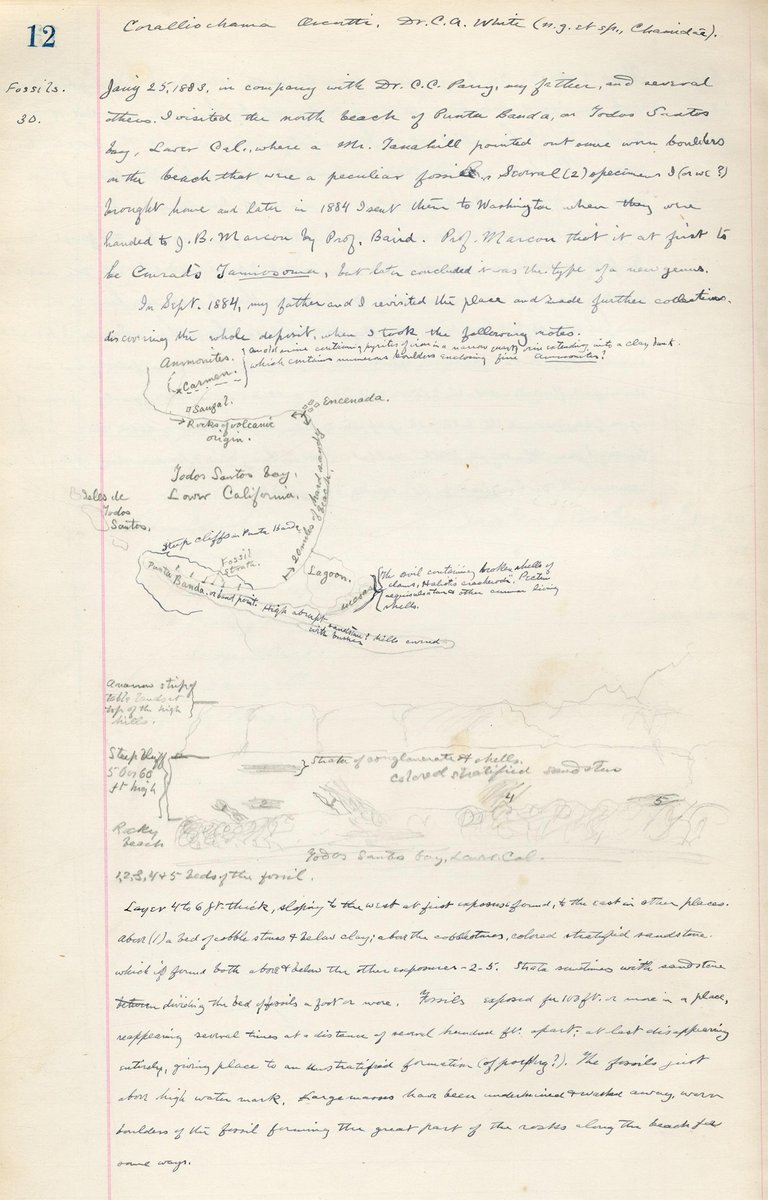 12
Coralliochama Orcutti, Dr. C. A. White (n. g. et sp., Chamidae).
Fossils.
30.
Jan'y 25, 1883, in company with Dr. C. C. Parry, my father, and several
others. I visited the north beach of Punta Banda, on Todos Santos
bay, Lower Cal., where a Mr. Tanahill pointed out some worn boulders
on the beach that were a peculiar fossil. Several (2) specimens I (or we?)
brought home and later in 1884 I sent them to Washington when they were
handed to J. B. Marcou by Prof. Baird. Prof. Marcou that it at first to
be Conrad's Tamiosoma, but later concluded it was the type of a new genus.
In Sept. 1884, my father and I revisited the place and made further collections.
discovering the whole deposit, when I took the following notes.
Ammonites.
an old mine containing pyrites of iron in a narrow vein extending into a clay bank
which contains numerous boulders enclosing fine Ammonites?
x Carmen.
Sauzal.
Encenada.
Rocks of volcanic
origin.
Todos Santos bay,
Lower California.
20 miles of hard sandy
beach.
Isles de
Todos
Santos.
Steep cliffs on Punta Banda
Fossil
Strata.
Lagoon.
Punta Banda, or band point. High abrupt sandstone hills covered
with bushes
mesas
The soil containing broken shells of
clams, Haliotis cracherodii, Pecten
aequisulcatus & other common living
shells.
A narrow strip of
table land at
top of the high
hills.
Steep bluff
50 or 60
ft high
Strata of conglomerate & shells.
colored stratified sandstone
2
4
5
Rocky
beach
Todos Santos bay, Lower Cal.
1, 2, 3, 4 & 5 beds of the fossil.
Layer 4 to 6 ft. thick, sloping to the west at first exposure found, to the east in other places.
Above (1) a bed of cobble stones & below clay; above the cobblestones, colored stratified sandstone
which is found both above & below the other exposures - 2-5. Strata sometimes with sandstone
between dividing the bed of fossils a foot or more. Fossils exposed for 100 ft. or more in a place,
reappearing several times at a distance of several hundred ft. apart; at last disappearing
entirely, giving place to an unstratified formation (of porphry?). The fossils just
above high water mark. Large masses have been undermined & washed away, worn
boulders of the fossil forming the great part of the rocks along the beach for
some ways.